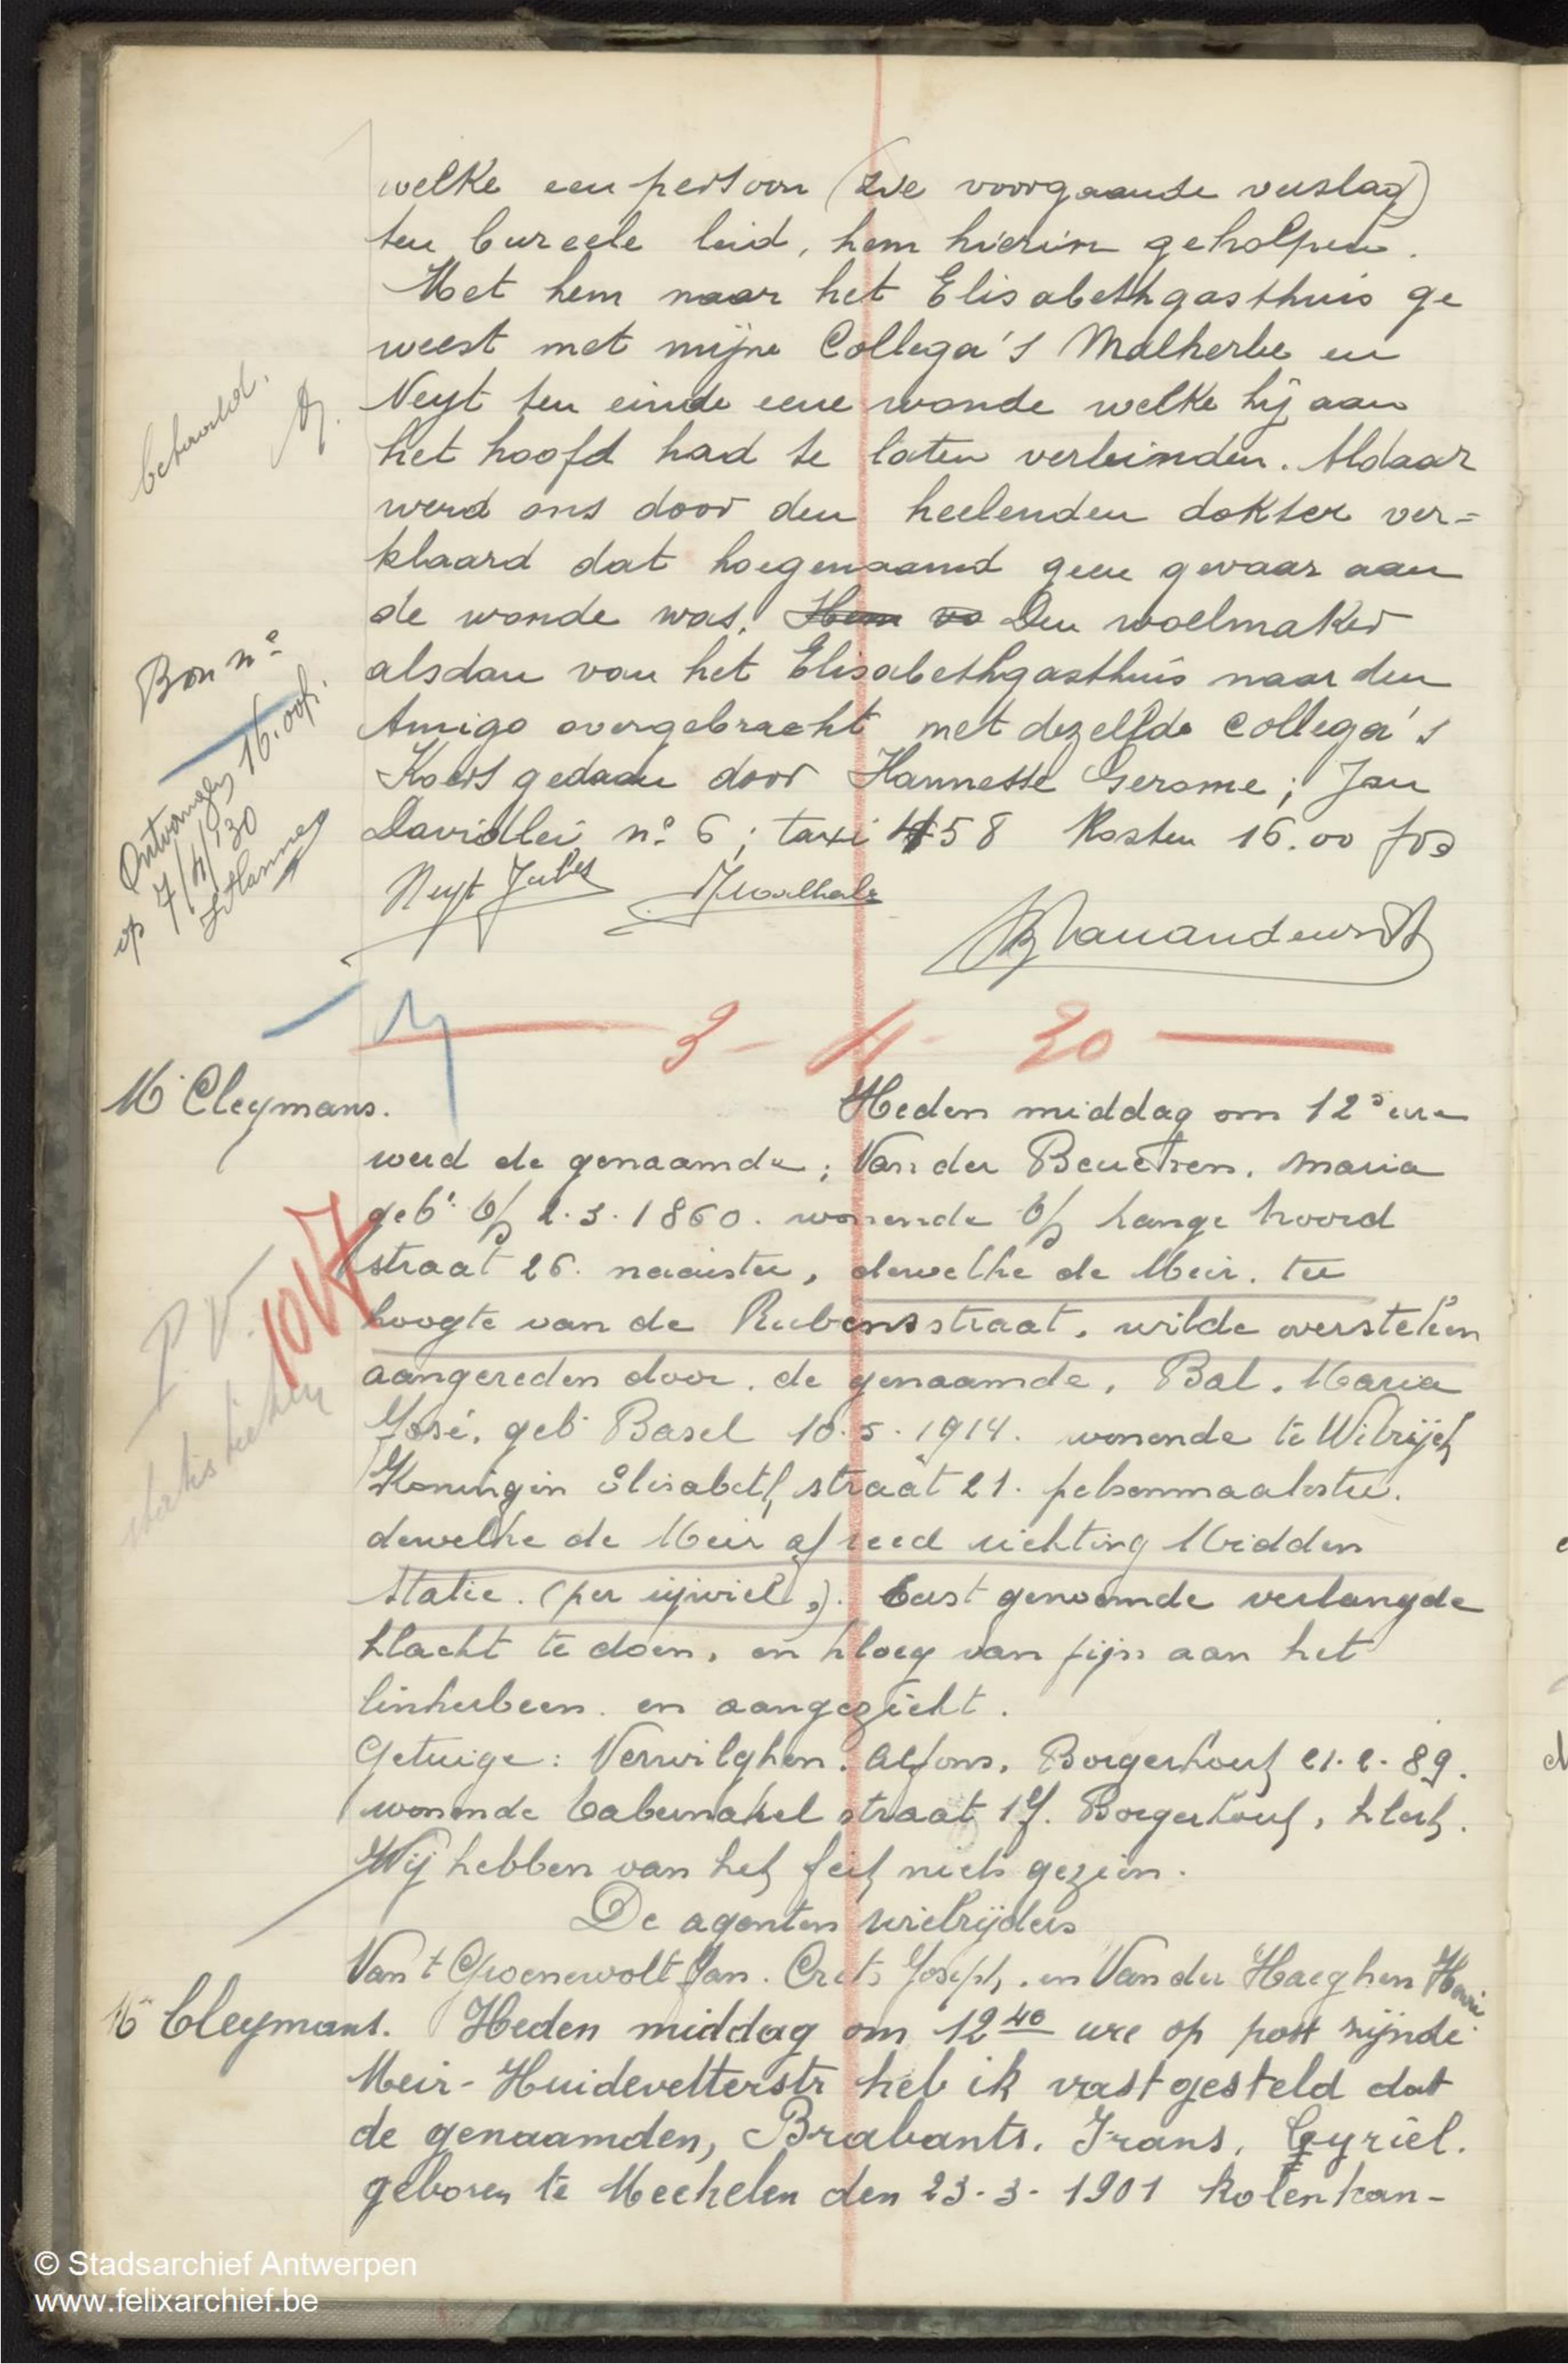 welke een persoon (zie voorgaande verslag)
ten bureele leid, hem hierin geholpen.
Met hem naar het Elisabethgasthuis ge
weest met mijne Collega's Malherbe en
Neyt ten einde eene wonde welke hij aan
het hoofd had te laten verbinden. Aldaar
werd ons door den heelenden dokter ver=
klaard dat hoegenaamd geen gevaar aan
de wonde was. Hem vo Den woelmaker
alsdan van het Elisabethgasthuis naar den
Amigo overgebracht met dezelfde collega's
Koers gedaan door Hannesse Gerome; Jan
Davidlei n° 6; taxi 458 Kosten 16.00 frs
betaald.
Bon n°
Ontvangen 16.00 fr.
op 7/4/30
Neyt Jules
3 - 4 - 30
Mr Cleymans.
Heden middag om 12 ure
werd de genaamde; Van der Beucken. Maria
geb. Op 2.3.1860. wonende Op Lange Noord
straat 26. naaister, dewelke de Meir. ter
hoogte van de Rubensstraat, wilde oversteken
aangereden door de genaamde, Bal. Maria
José, geb Basel 10.5.1914. wonende te Wilrijck
Koningin Elisabeth straat 21. pelsenmaakster.
dewelke de Meir af reed richting Midden
statie. (per rijwiel). Eerst genoemde verlangde
klacht te doen, en kloeg van pijn aan het
linkerbeen en aangezicht.
P.V. 1017
statistieken
Getuige: Verwilghen. Alfons, Borgerhout 21.2.89.
wonende Tabernakel straat 17. Borgerhout, klerk.
Wij hebben van het feit niets gezien.
De agenten wielrijders
Van t Groenewolt Jan. Crets Joseph. en Van der Haeghen Henri
Mr Cleymans. Heden middag om 12 40 ure op post zijnde
Meir-Huidevetterstr heb ik vastgesteld dat
de genaamden, Brabants. Frans, Cyriel.
geboren te Mechelen den 23-3-1901 Kolenhan-
© Stadsarchief Antwerpen
www.felixarchief.be